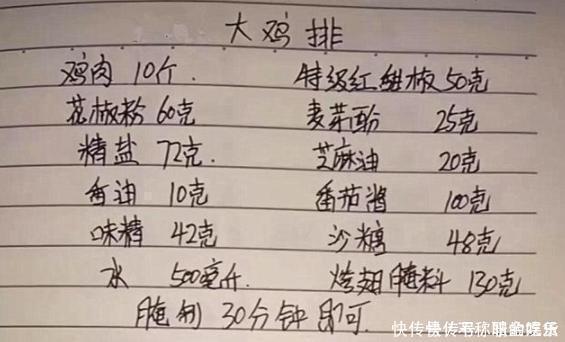 大鸡排
鸡肉 10斤. 特级红甜椒 50克
花椒粉 60克 麦芽酚 25克
精盐 72克. 芝麻油 20克
香油 10克 番茄酱 100克
味精 42克 沙糖 48克
水 500毫升 烤翅腌料 130克
腌制 30分钟即可.